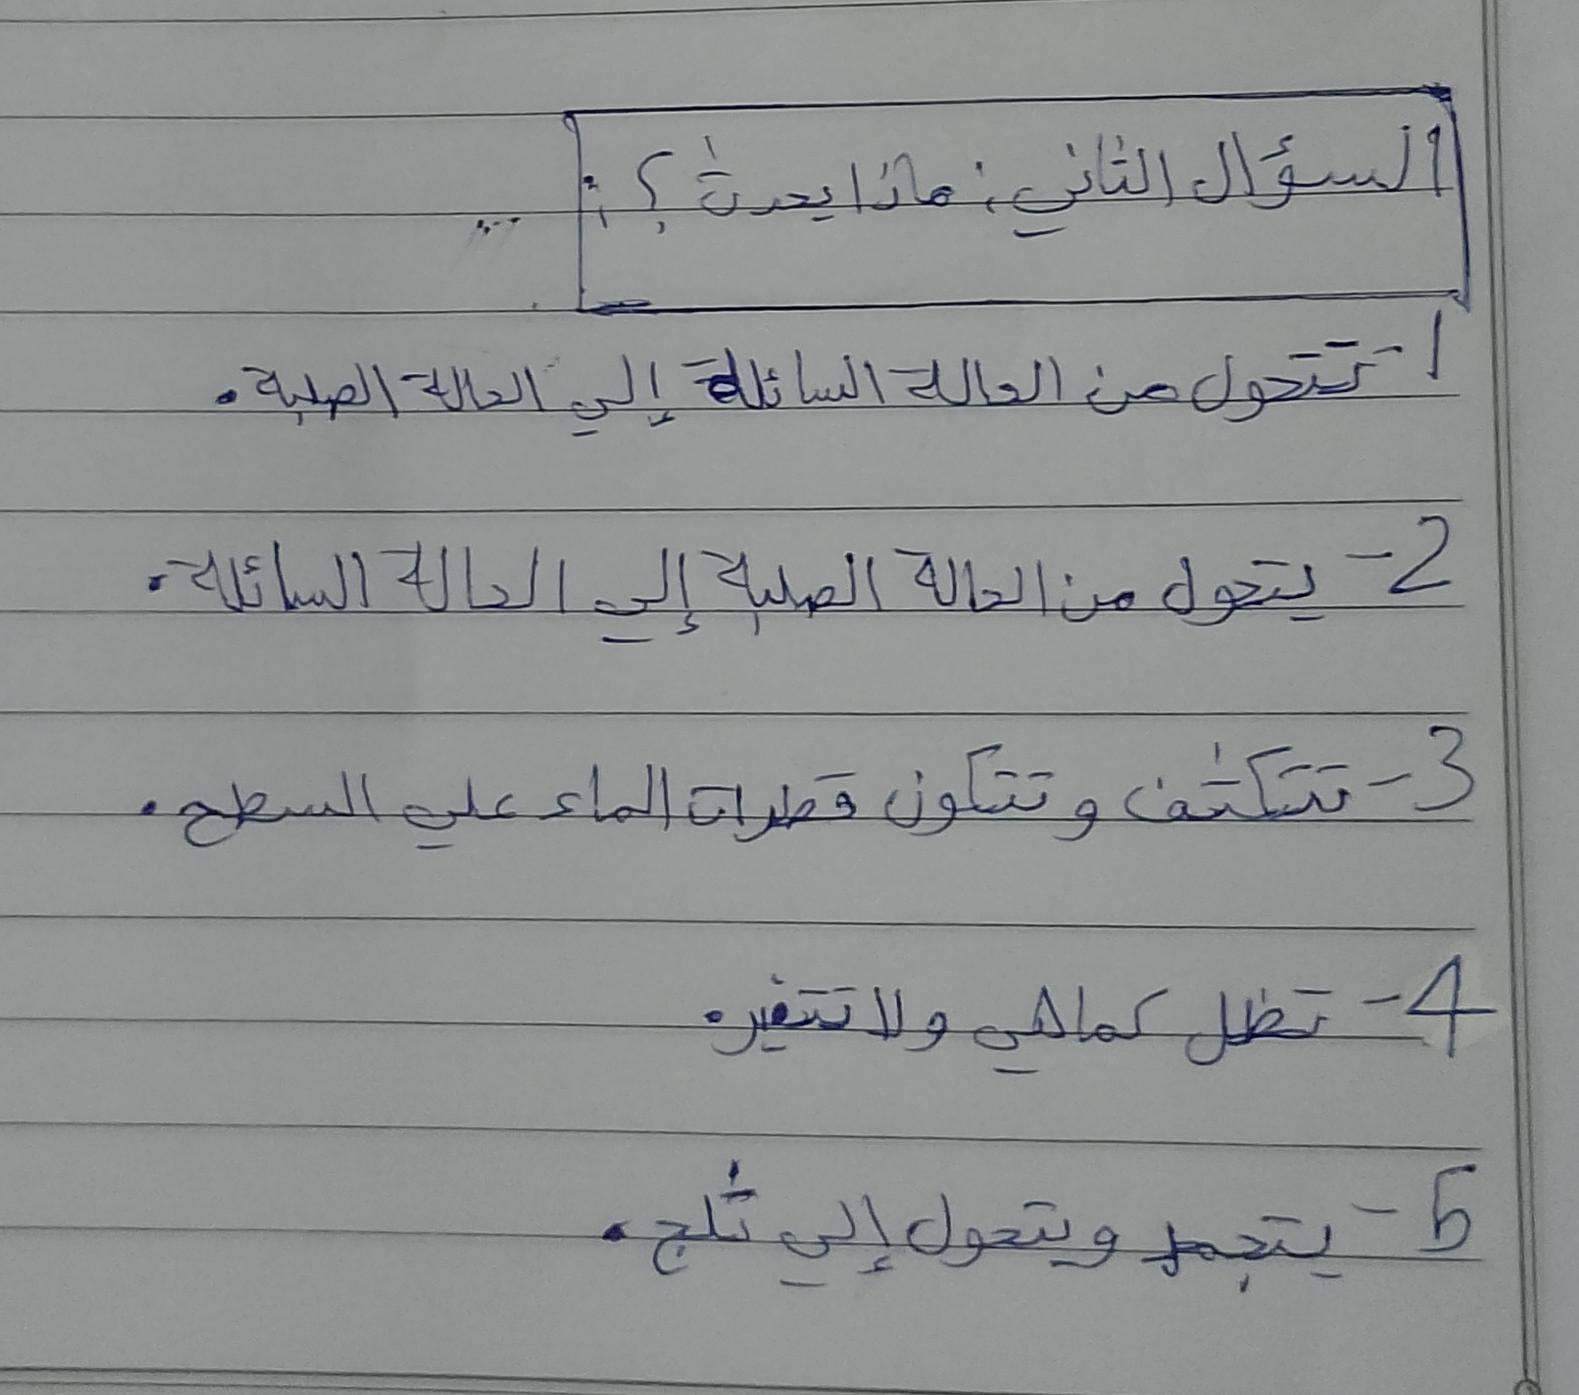 السؤال الثاني: ماذا يحدث؟:
1- تتحول من الحالة السائلة إلي الحالة الصلبة.
2- يتحول من الحالة الصلبة إلي الحالة السائلة.
3- تتكثف و تتكون قطرات الماء علي السطح.
4- تظل كماهي ولا تتغير.
5- يتجمد ويتحول إلي ثلج.